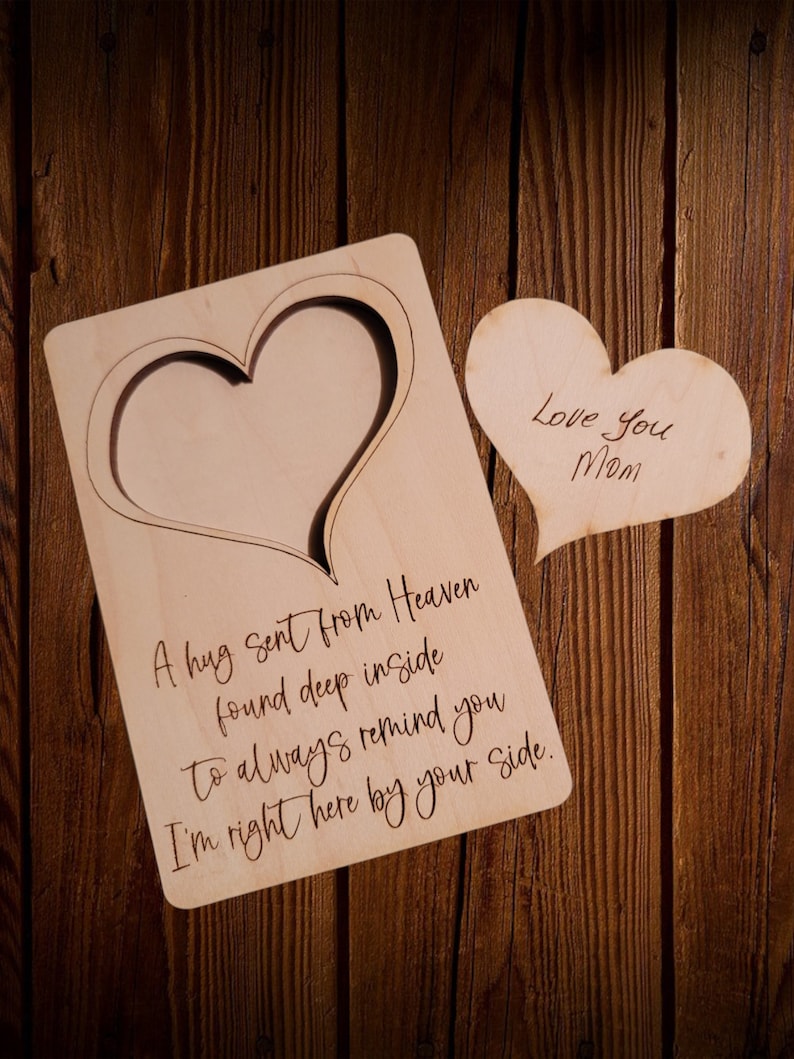 A hug sent from Heaven
found deep inside
to always remind you
I'm right here by your side.
Love You
Mom